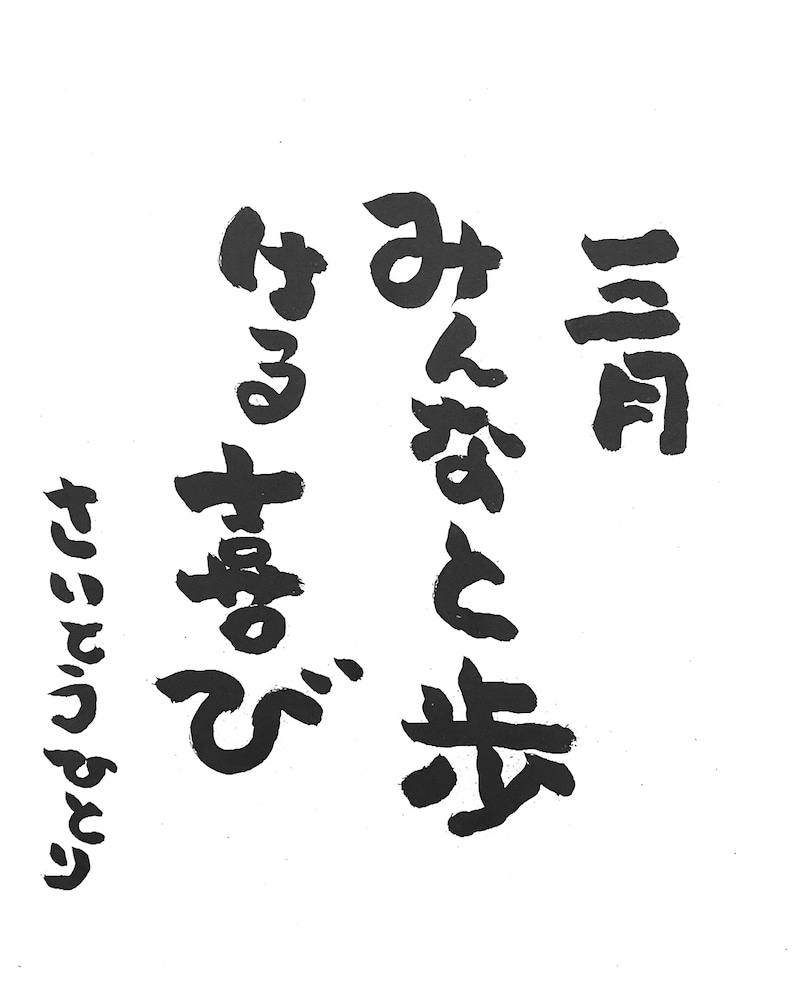 三月
みんなと歩
ける喜び
さいとう